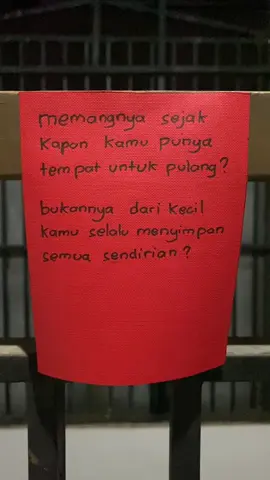 memangnya sejak
kapan kamu punya
tempat untuk pulang?
bukannya dari kecil
kamu selalu menyimpan
semua sendirian?